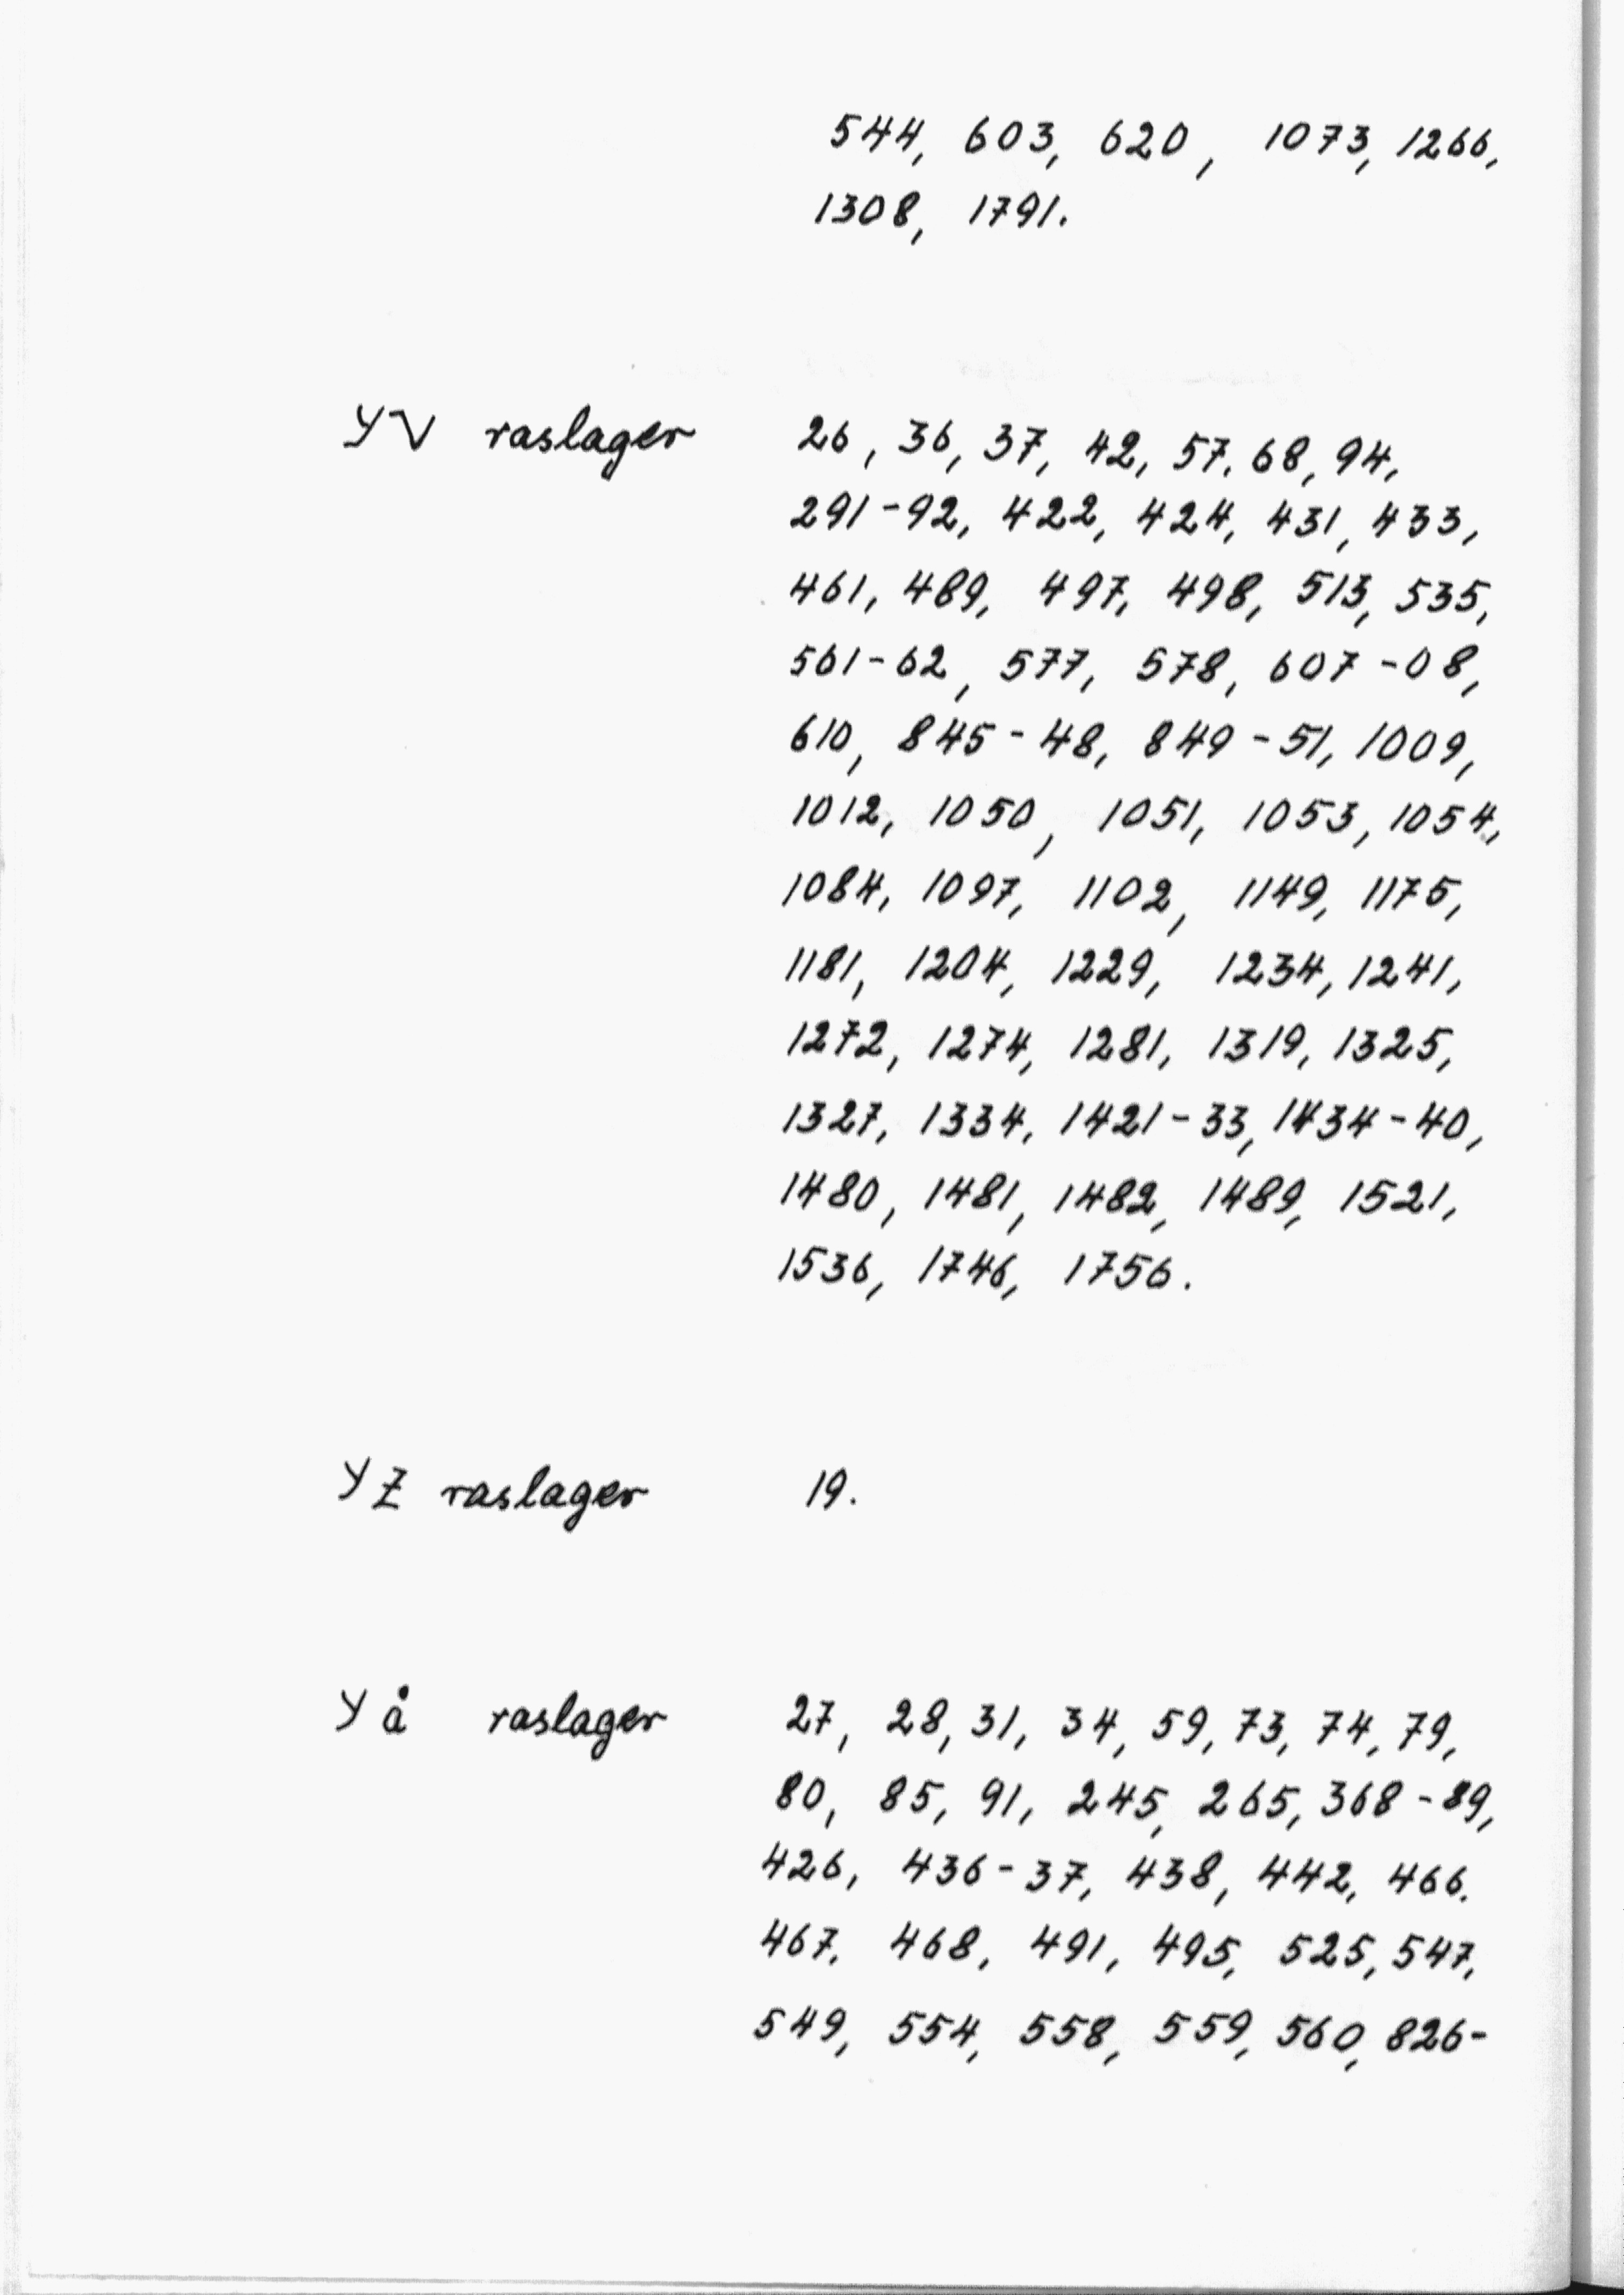 544, 603, 620, 1073, 1266,
1308, 1791.
YV raslager 26, 36, 37, 42, 57, 68, 94,
291-92, 422, 424, 431, 433,
461, 489, 497, 498, 513, 535,
561-62, 577, 578, 607-08,
610, 845-48, 849-51, 1009,
1012, 1050, 1051, 1053, 1054,
1084, 1097, 1102, 1149, 1175,
1181, 1204, 1229, 1234, 1241,
1272, 1274, 1281, 1319, 1325,
1327, 1334, 1421-33, 1434-40,
1480, 1481, 1482, 1489, 1521,
1536, 1746, 1756.
YZ raslager 19.
Yå raslager 27, 28, 31, 34, 59, 73, 74, 79,
80, 85, 91, 245, 265, 368-89,
426, 436-37, 438, 442, 466.
467, 468, 491, 495, 525, 547,
549, 554, 558, 559, 560, 826-